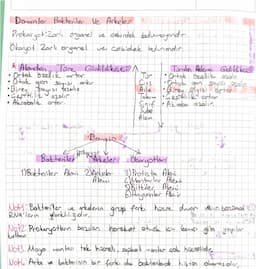 Domainler Bakteriler Ve Arkeler
Prokaryot: Zarlı organel ve çekirdek bulunmayandır.
Ökaryot: Zarlı organel ve çekirdek bulunandır.
* Alemden Türe Gidildikçe
• Ortak özellik artar
• Ortak gen sayısı artar
• Birey sayısı azalır
• Çeşitlilik azalır
• Akrabalık artar
Tür
Cins
Aile
Takım
Sınıf
Şube
Alem
Türden Aleme Gidildikçe
• Ortak özellik azalır
• Ortak gen sayısı azalır
• Birey sayısı artar
• Çeşitlilik artar
• Akraba azalır
Domain
Bakteriler
Arkeler
Ökaryotlar
1) Bakteriler Alemi
2) Arkeler Alemi
1) Protista Alemi
2) Mantarlar Alemi
3) Bitkiler Alemi
4) Hayvanlar Alemi
Not: Bakteriler ve arkelerin grup farkı hücre duvarı
RNA'ların farklılığıdır.
Not: Prokaryotların bazıları hareket etmek için kamçı gibi yapılar
Not: Maya mantarı tek hücreli, şapkalı mantar çok hücrelidir.
Not: Arke ve bakterinin bir farkı da